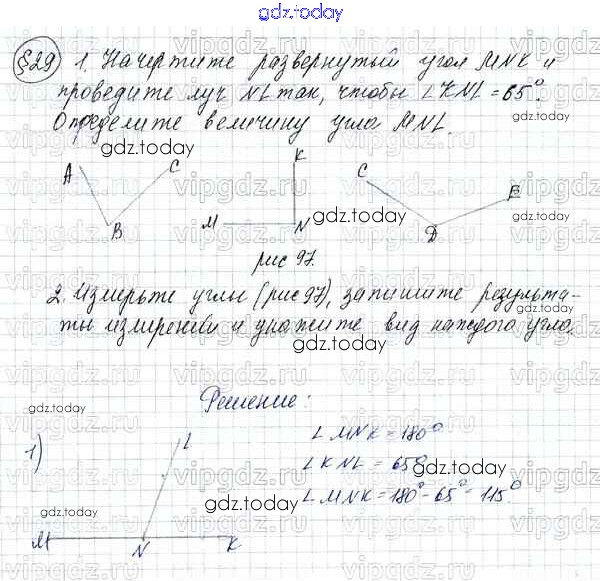 gdz.today
§29 1. Начертите развернутый угол MNK и
проведите луч NL так, чтобы ∠KNL = 65°.
Определите величину угла MNL.
gdz.today
A C K C E
B M N D
gdz.today
gdz.today
рис 97.
2. Измерьте углы (рис 97), запишите результа-
ты измерений и укажите вид каждого угла.
gdz.today
Решение:
gdz.today
1) L
∠MNK = 180°
∠KNL = 65°
∠MNK = 180° - 65° = 115°.
gdz.today
gdz.today
M N K
gdz.today
gdz.today
vipgdz.ru